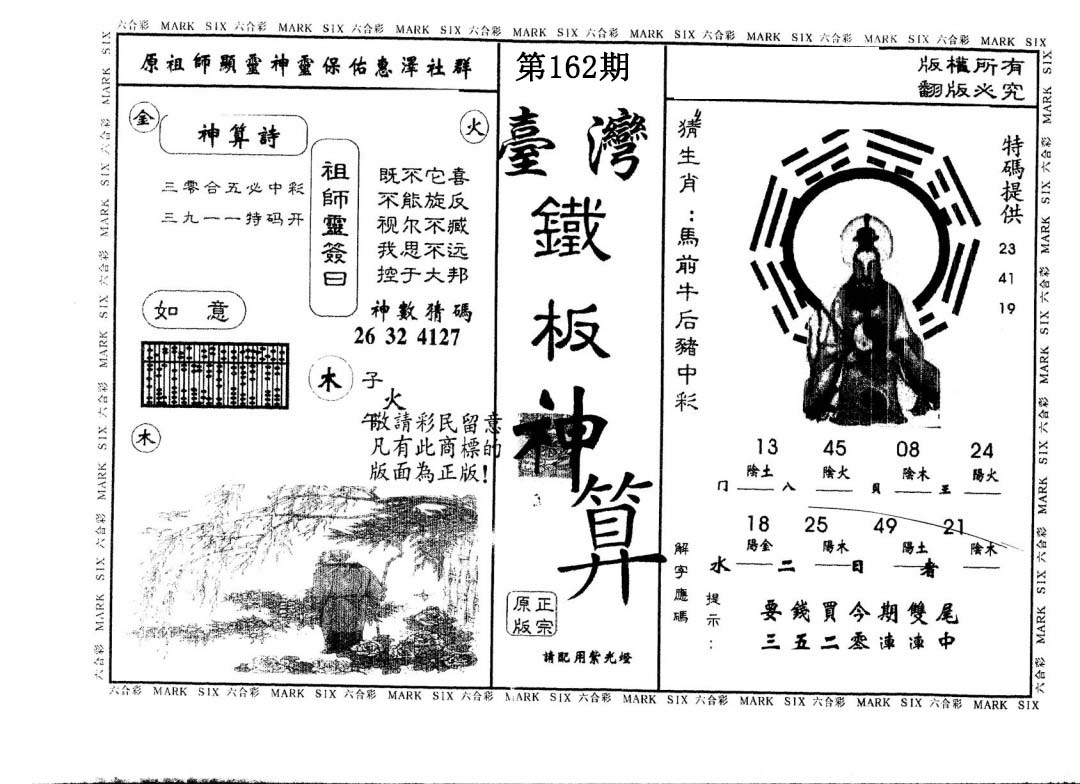 六合彩 MARK SIX 六合彩 MARK SIX 六合彩 MARK SIX 六合彩 MARK SIX 六合彩 MARK SIX 六合彩 MARK SIX 六合彩 MARK SIX 六合彩 MARK SIX
原祖師顯靈神靈保佑惠澤社群
金
火
神算詩
三零合五必中彩
三九一一特码开
祖師靈簽曰
既不它喜
不能旋反
视尔不臧
我思不远
控于大邦
神數猜碼
26 32 4127
如意
木 子
火
午
敬請彩民留意
凡有此商標的
版面為正版!
木
第162期
臺灣
鐵
板
神
算
正宗
原版
請配用紫光燈
版權所有
翻版必究
猜生肖:馬前牛后豬中彩
特碼提供
23
41
19
13 45 08 24
陰土 陰火 陰木 陽火
冂 八 貝 王
18 25 49 21
陽金 陽木 陽土 陰木
水 二 日 者
解字應碼
提示:
要錢買今期雙尾
三五二零連連中
六合彩 MARK SIX 六合彩 MARK SIX 六合彩 MARK SIX 六合彩 MARK SIX 六合彩 MARK SIX 六合彩 MARK SIX 六合彩 MARK SIX 六合彩 MARK SIX